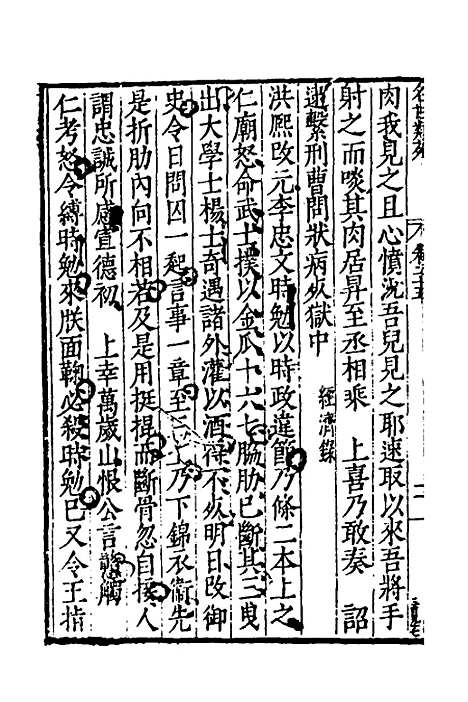 名世類苑 卷三十五
肉我見之且心憤況吾兒見之耶速取以來吾將手
射之而啖其肉居昇至丞相乘 上喜乃敢奏 詔
逮繫刑曹問狀病死獄中 經濟錄
洪熙改元李忠文時勉以時政違節乃條二本上之
仁廟怒命武士撲以金瓜十六七脇肋已斷其三曳
出大學士楊士奇遇諸外灌以酒得不死明日改御
史令日問囚一起言事一章至三上乃下錦衣衛先
是折肋內向不相若及是用挺提而斷骨忽自接人
謂忠誠所感宣德初 上幸萬歲山恨公言觸
仁考怒令縛時勉來朕面鞫必殺時勉已又令王指